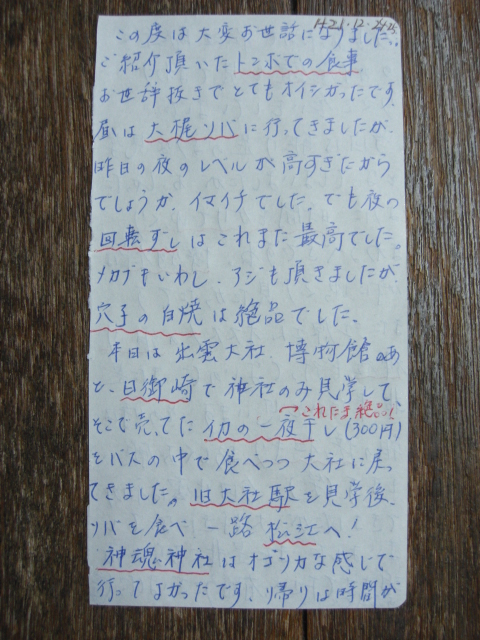 H21.12.24
この度は大変お世話になりました。
ご紹介頂いたトンボでの食事
お世辞抜きでとてもオイシかったです。
昼は大梶ソバに行ってきましたが、
昨日の夜のレベルが高すぎたから
でしょうか、イマイチでした。でも夜の
回転ずしはこれまた最高でした。
メカブもいわし、アジも頂きましたが
穴子の白焼は絶品でした、
本日は出雲大社、博物館のあ
と、日御崎で神社のみ見学して、
これたま絶品!
そこで売ってたイカの一夜干し(300円)
をバスの中で食べつつ大社に戻っ
てきました。旧大社駅を見学後、
ソバを食べ一路松江へ!
神魂神社はオゴソカな感じで
行ってよかったです。帰りは時間が